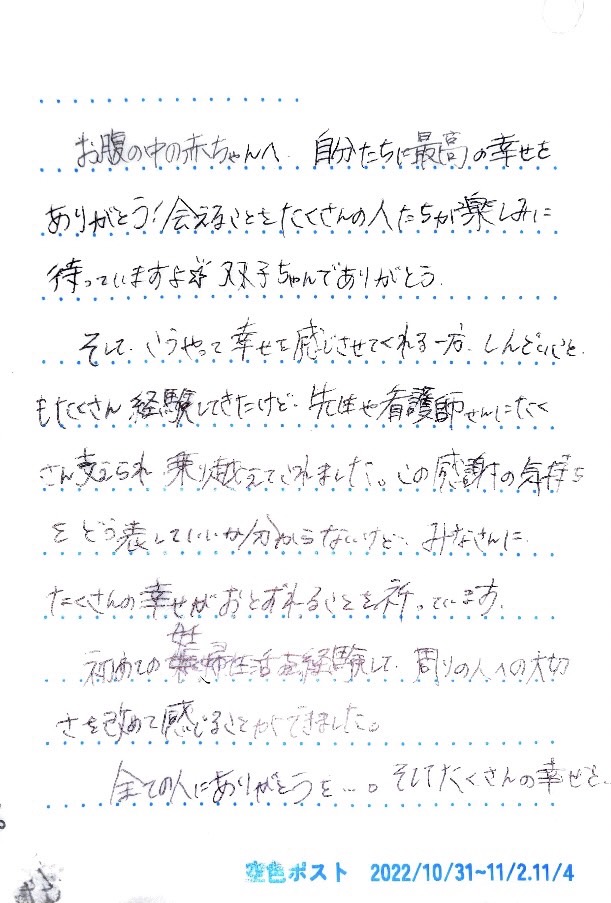 お腹の中の赤ちゃんへ 自分たちに最高の幸せを
ありがとう!会えることをたくさんの人たちが楽しみに
待っていますよ 双子ちゃんでありがとう。
そして、こうやって幸せを感じさせてくれる一方、しんどいこと
もたくさん経験してきたけど、先生や看護師さんにたく
さん支えられ 乗り越えてこれました。この感謝の気持ち
をどう表していいか分からないけど、みなさんに
たくさんの幸せがおとずれることを祈っています。
初めての妊婦生活を経験して、周りの人への大切
さを改めて感じることができました。
全ての人にありがとうを…。そしてたくさんの幸せを…
空色ポスト 2022/10/31~11/2.11/4